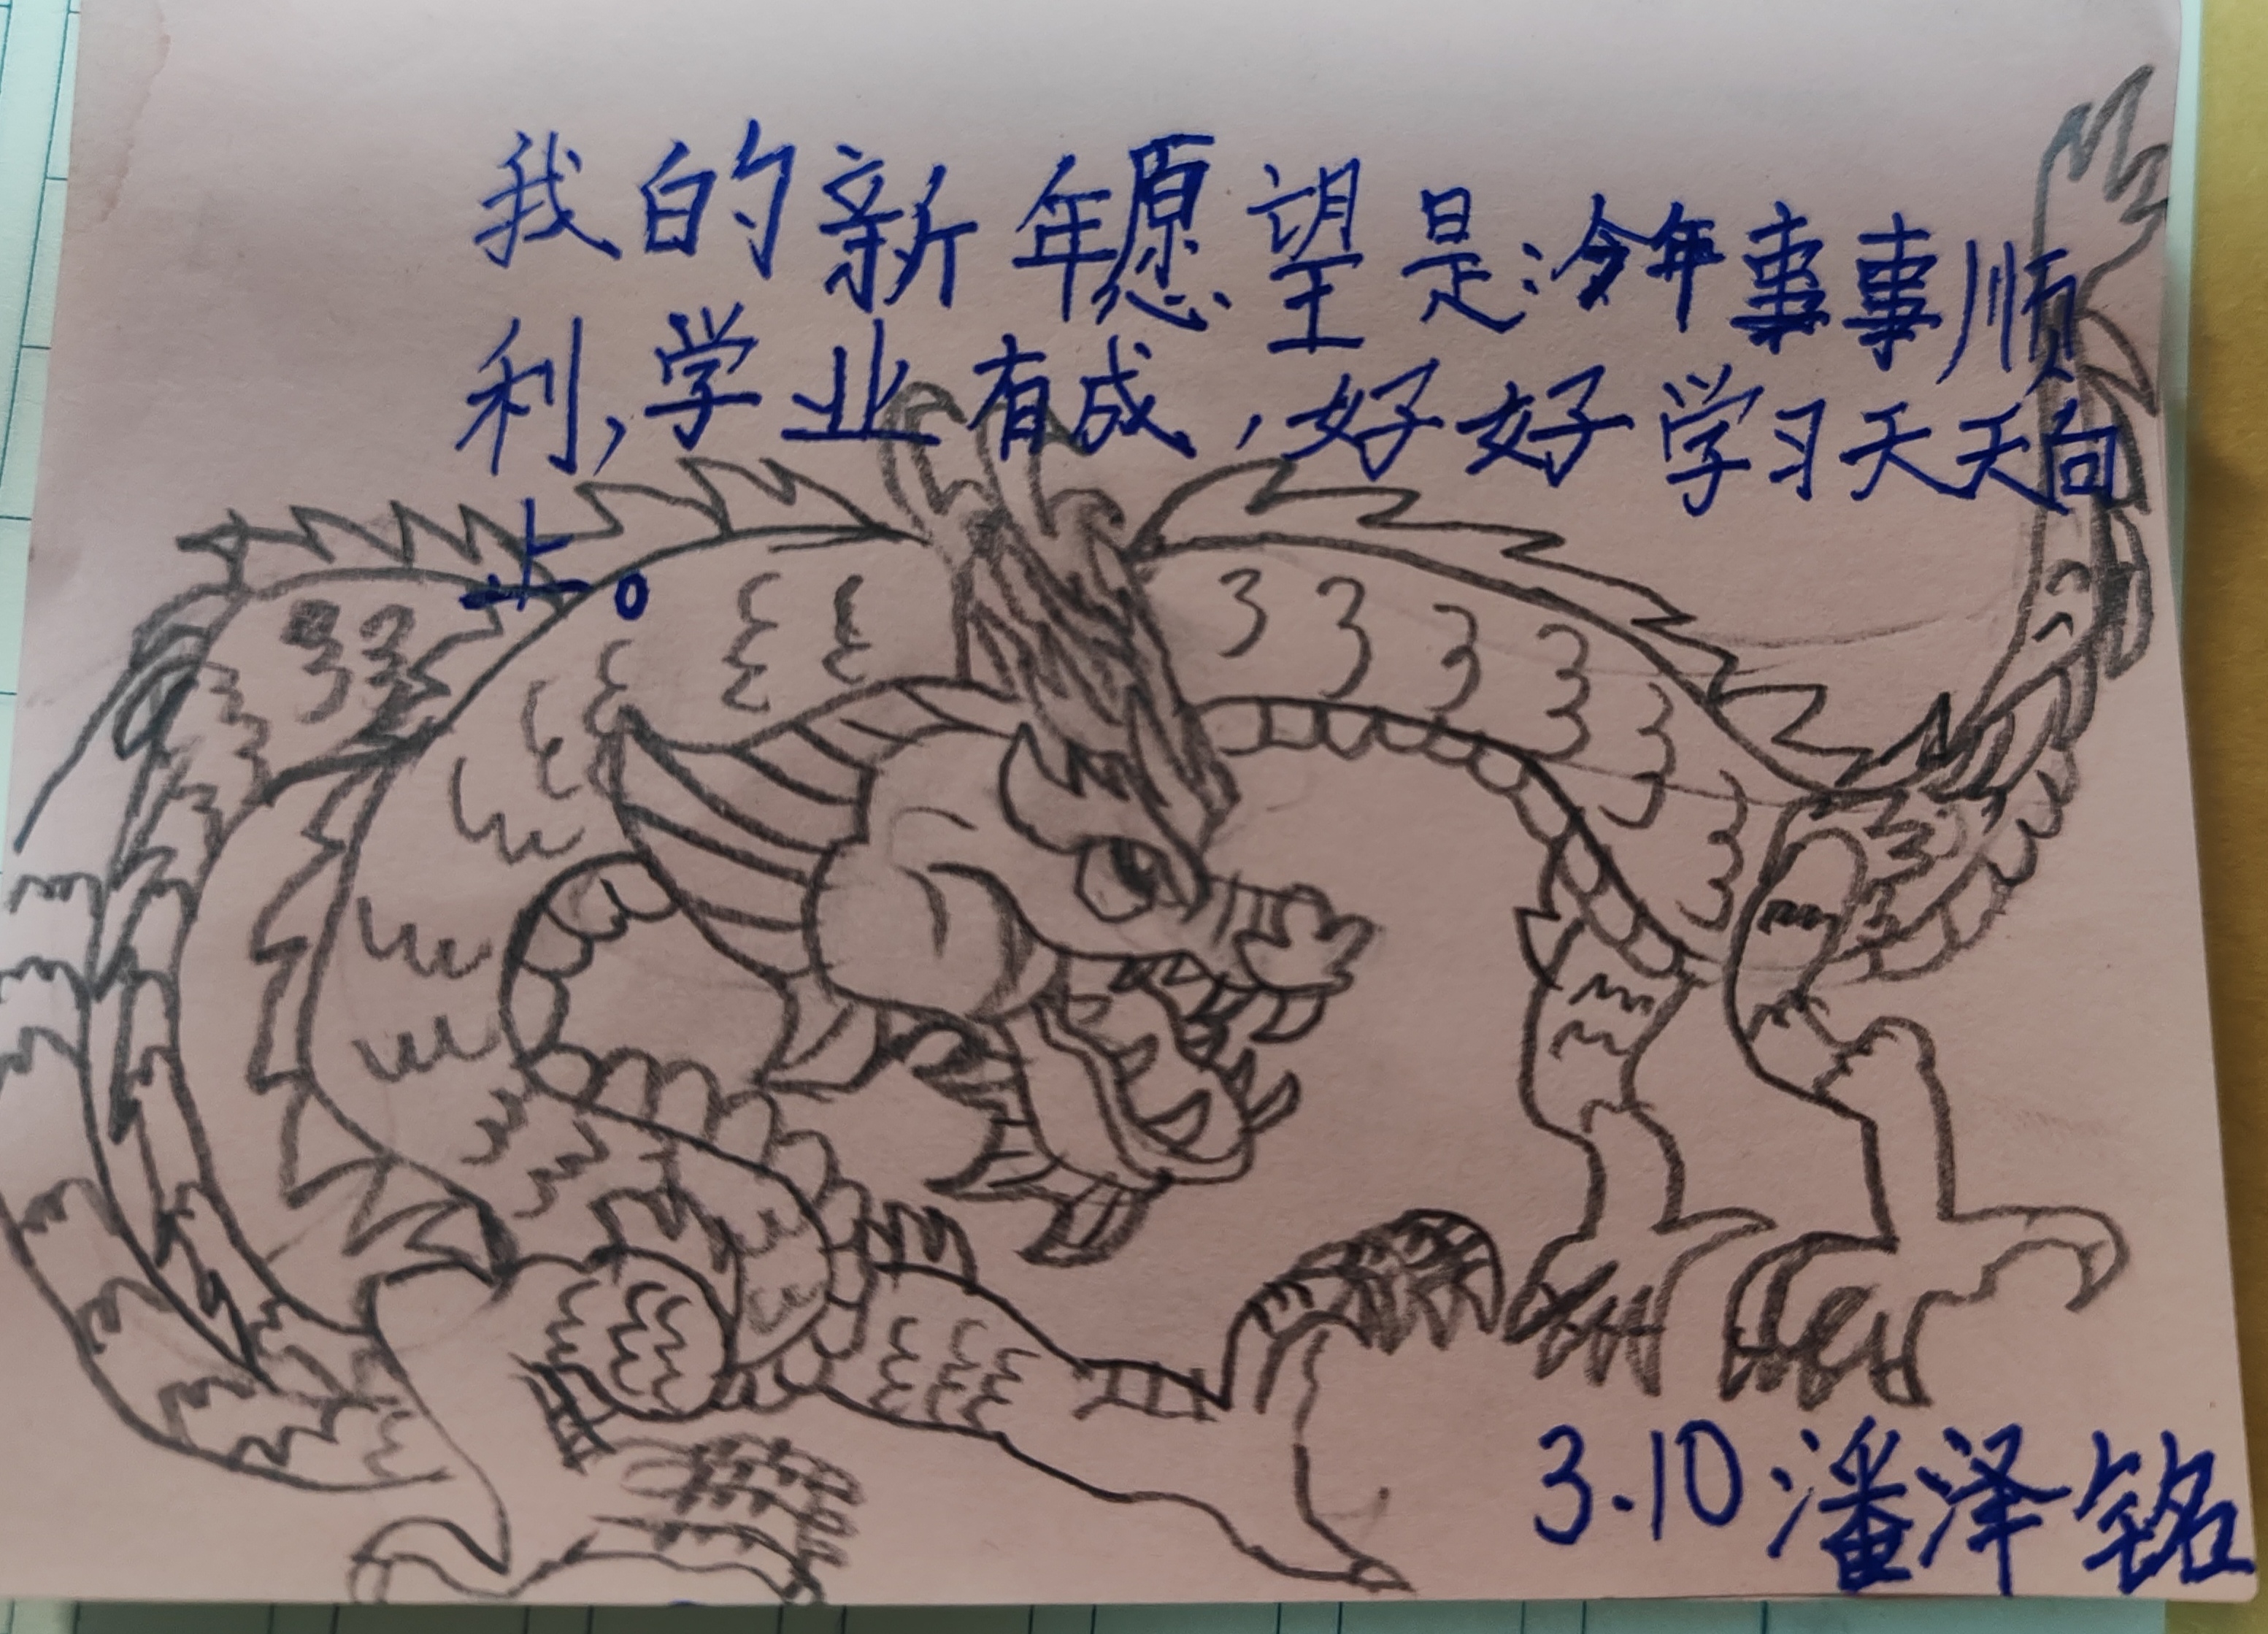 我的新年愿望是:今年事事顺
利,学业有成,好好学习天天向
上。
3.10潘泽铭